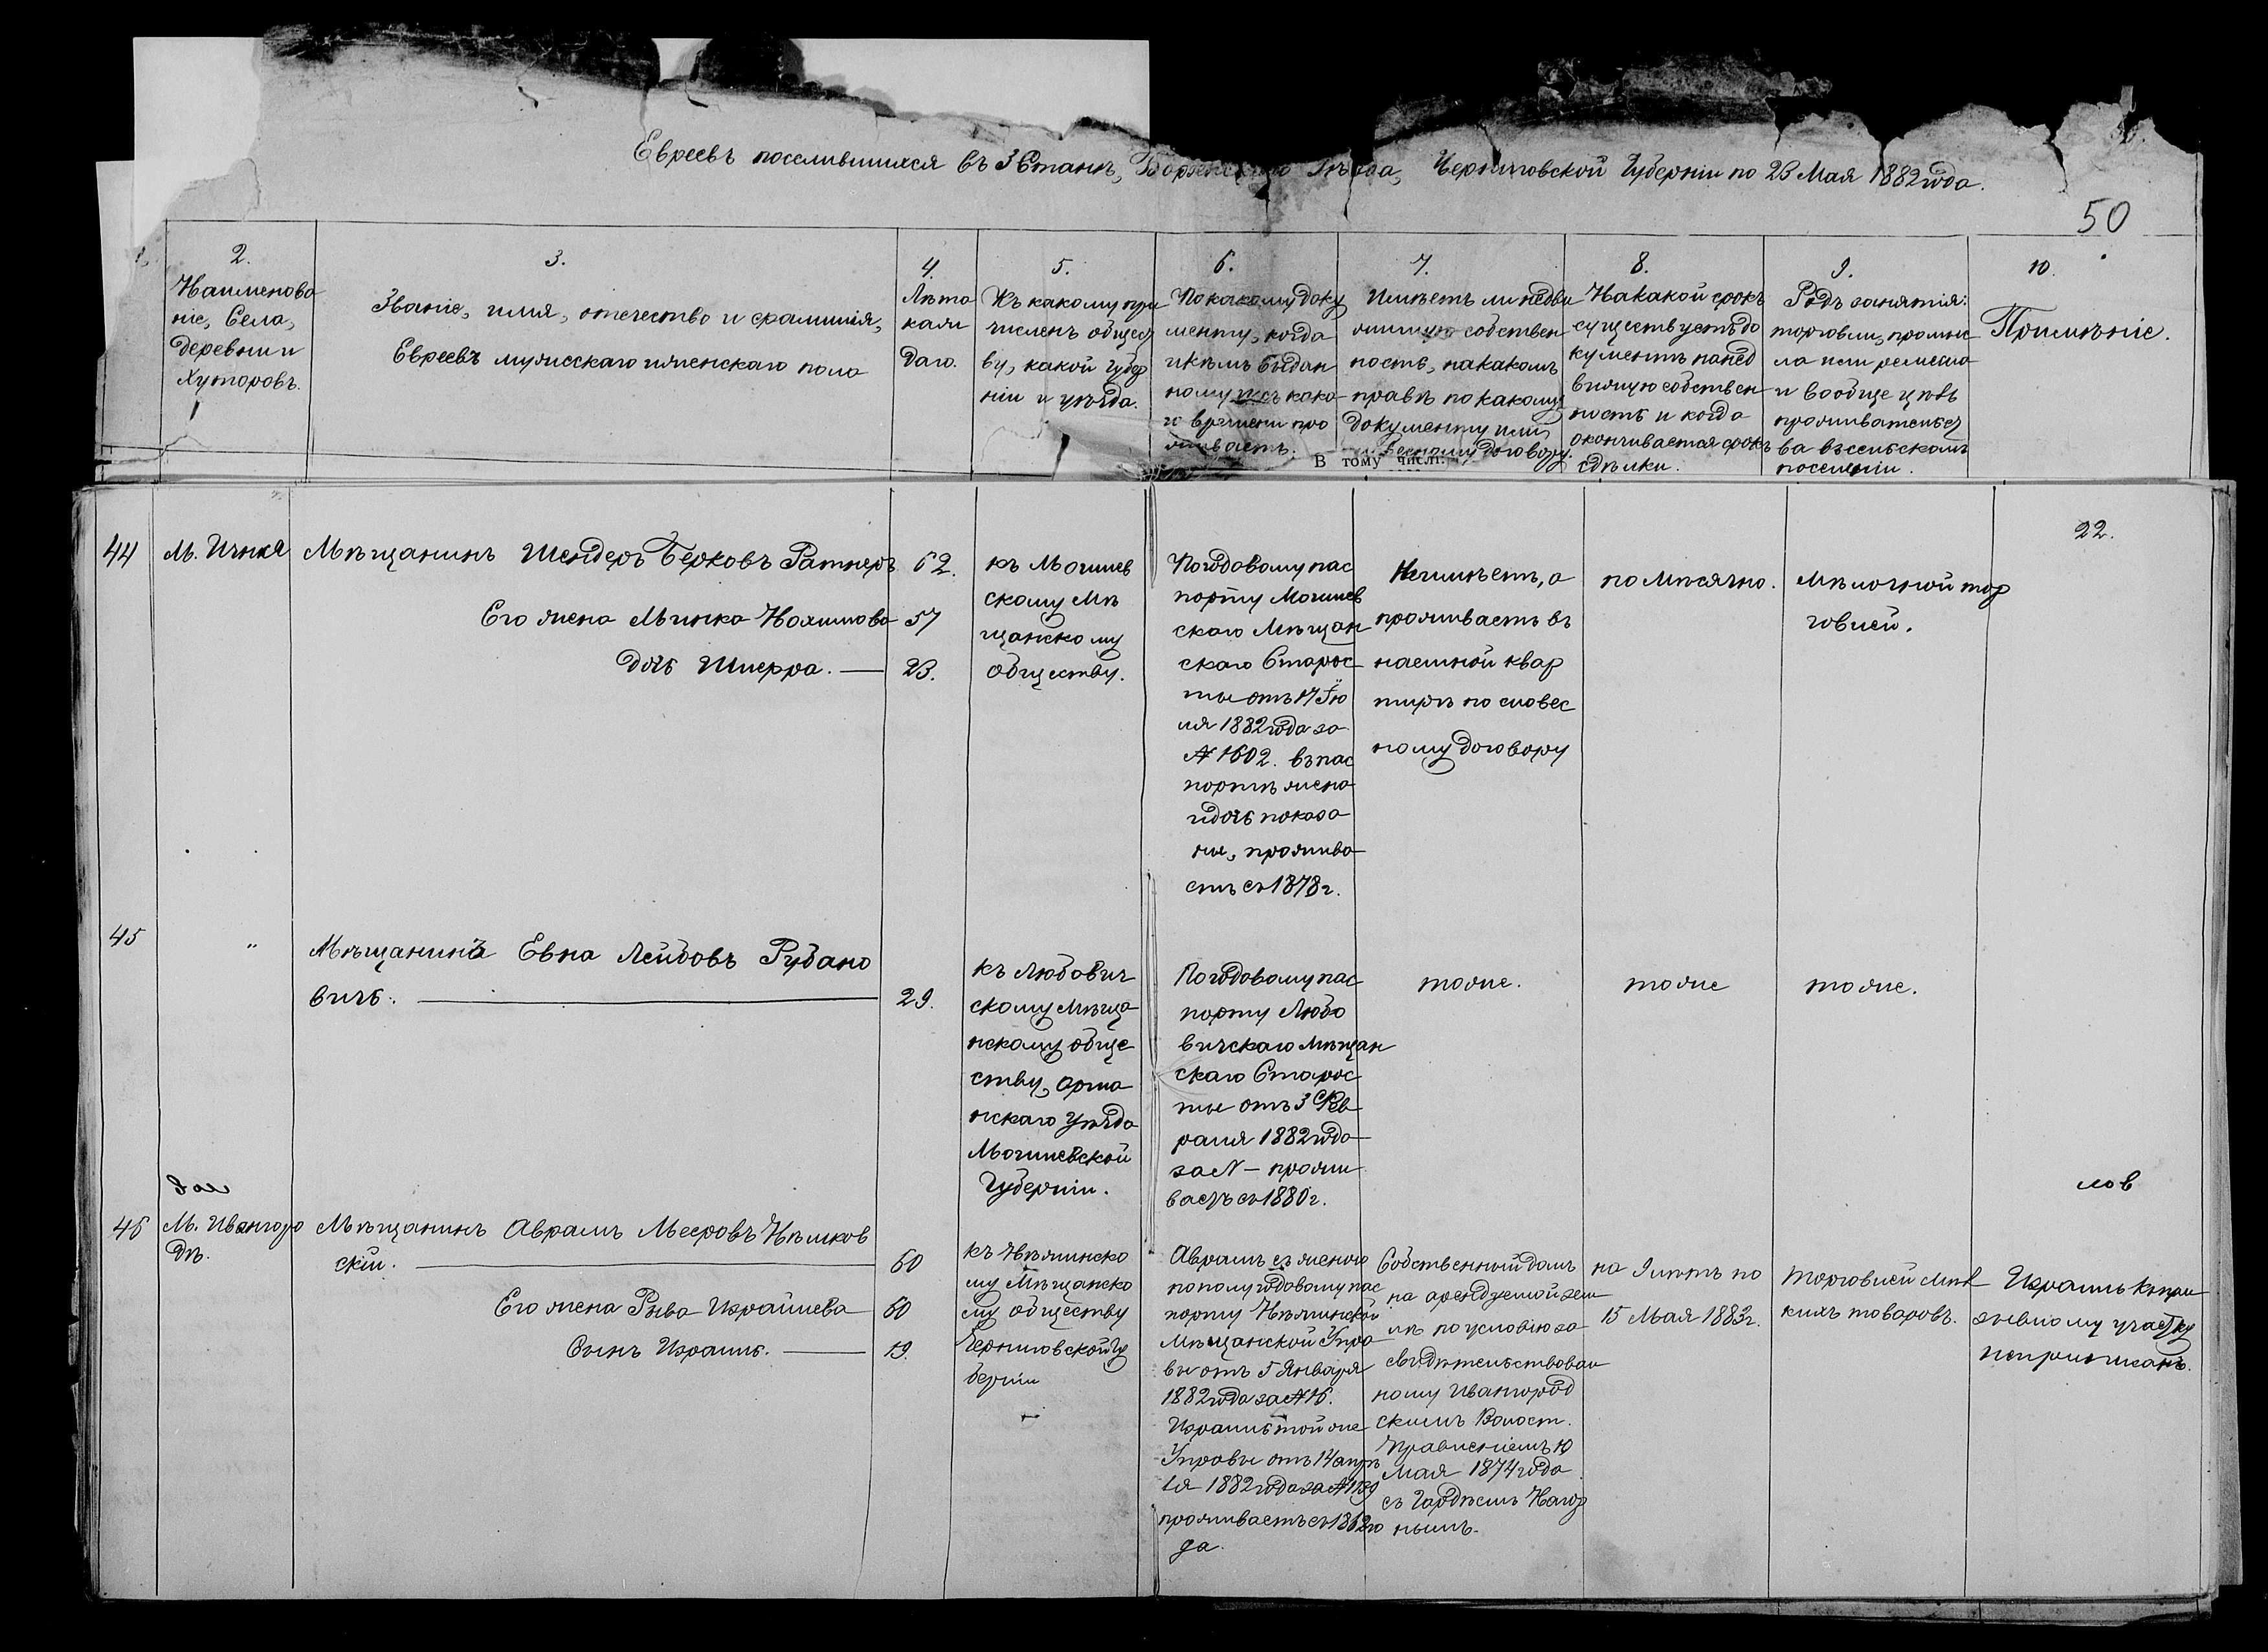 Евреевъ поселившихся въ 3 Станѣ, Борзенскаго Уѣзда, Черниговской Губерніи по 23 Мая 1882 года.
50
2.
Наименова
ніе, Села,
Деревни и
Хуторовъ.
3.
Званіе, имя, отечество и фамилія,
Евреевъ мужескаго и женскаго пола
4.
Лѣта
каж
даго.
5.
Къ какому при
численъ общест
ву, какой губер
ніи и уѣзда.
6.
По какому доку
менту, когда
и кѣмъ выдан
ному и съ како
го времени про
живаетъ.
7.
Имѣетъ ли недви
жимую собствен
ность, на какомъ
правѣ по какому
документу или
словесному договору.
В тому числѣ:
8.
На какой срокъ
существуетъ до
кументъ на нед
вижимую собствен
ность и когда
оканчивается срокъ
сдѣлки.
9.
Родъ занятія:
торговли, промыс
ла или ремесла
и вообще цѣль
проживательст
ва въ сельскомъ
поселеніи.
10.
Примѣніе.
22.
44
М. Ичня
Мѣщанинъ Шендеръ Берковъ Ратнеръ 62.
Его жена Минка Нохимова 57
дочь Шифра. — 23.
къ Могилев
скому Мѣ
щанскому
обществу.
По годовому пас
порту Могилев
скаго Мѣщан
скаго Старос
ты отъ 17 Ію
ля 1882 года за
№ 1602. въ пас
портѣ жена
и дочь показа
ны, прожива
етъ съ 1878 г.
Не имѣетъ, а
проживаетъ въ
наемной квар
тирѣ по словес
ному договору
помѣсячно.
Мѣлочной тор
говлей.
45
"
Мѣщанинъ Евна Лейбовъ Рубано
вичъ. — 29.
къ Любович
скому Мѣща
нскому обще
ству, Орша
нскаго Уѣзда
Могилевской
Губерніи.
По годовому пас
порту Любо
вичскаго Мѣщан
скаго Старос
ты отъ 3 Фев
раля 1882 года
за № — прожи
ваетъ съ 1880 г.
тоже.
тоже
тоже.
лов
46
М. Ивангоро
дѣ.
Мѣщанинъ Аврамъ Мееровъ Нѣжков
скій. — 60
Его жена Рыва Израилева 60
Сынъ Израиль. — 19.
къ Нѣжинско
му Мѣщанско
му обществу
Черниговской Гу
берніи
Аврамъ съ женою
по полугодовому пас
порту Нѣжинской
Мѣщанской Упра
вы отъ 5 Января
1882 года за № 16.
Израиль той же
Управы отъ 14 апрѣ
ля 1882 года за № 1139
проживаетъ съ 1862 го
да.
Собственный домъ
на арендуемой зем
лѣ по условію за
свидѣтельствован
ному Ивангород
скимъ Волост.
Правленіемъ 10
Мая 1874 года
съ Гордѣемъ Нагор
нымъ.
на 9 лѣтъ по
15 Мая 1883 г.
торговлей мѣл
кихъ товаровъ.
Израиль къ при
зывному участку
неприписанъ.